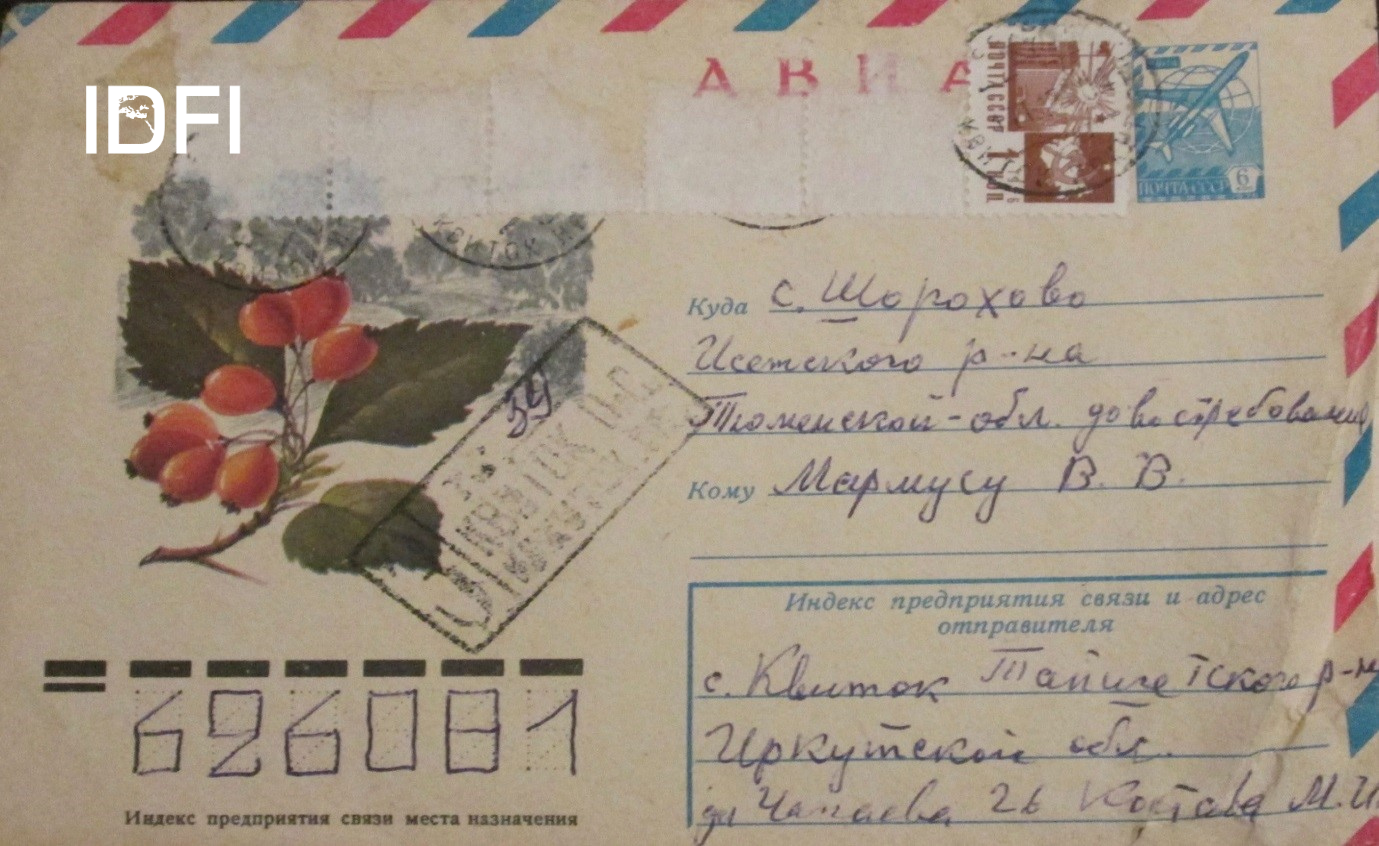 IDFI
АВИА
ПОЧТА СССР 1 КОП
ПОЧТА СССР 6
КВИТОК
Куда с. Шорохово
Исетского р-на
Тюменской обл. до востребования
Кому Мармусу В. В.
Индекс предприятия связи и адрес
отправителя
с. Квиток Тайшетского р-н
Иркутской обл.
ул Чапаева 26 Костава М. И.
39
КВИТОК
626081
Индекс предприятия связи места назначения